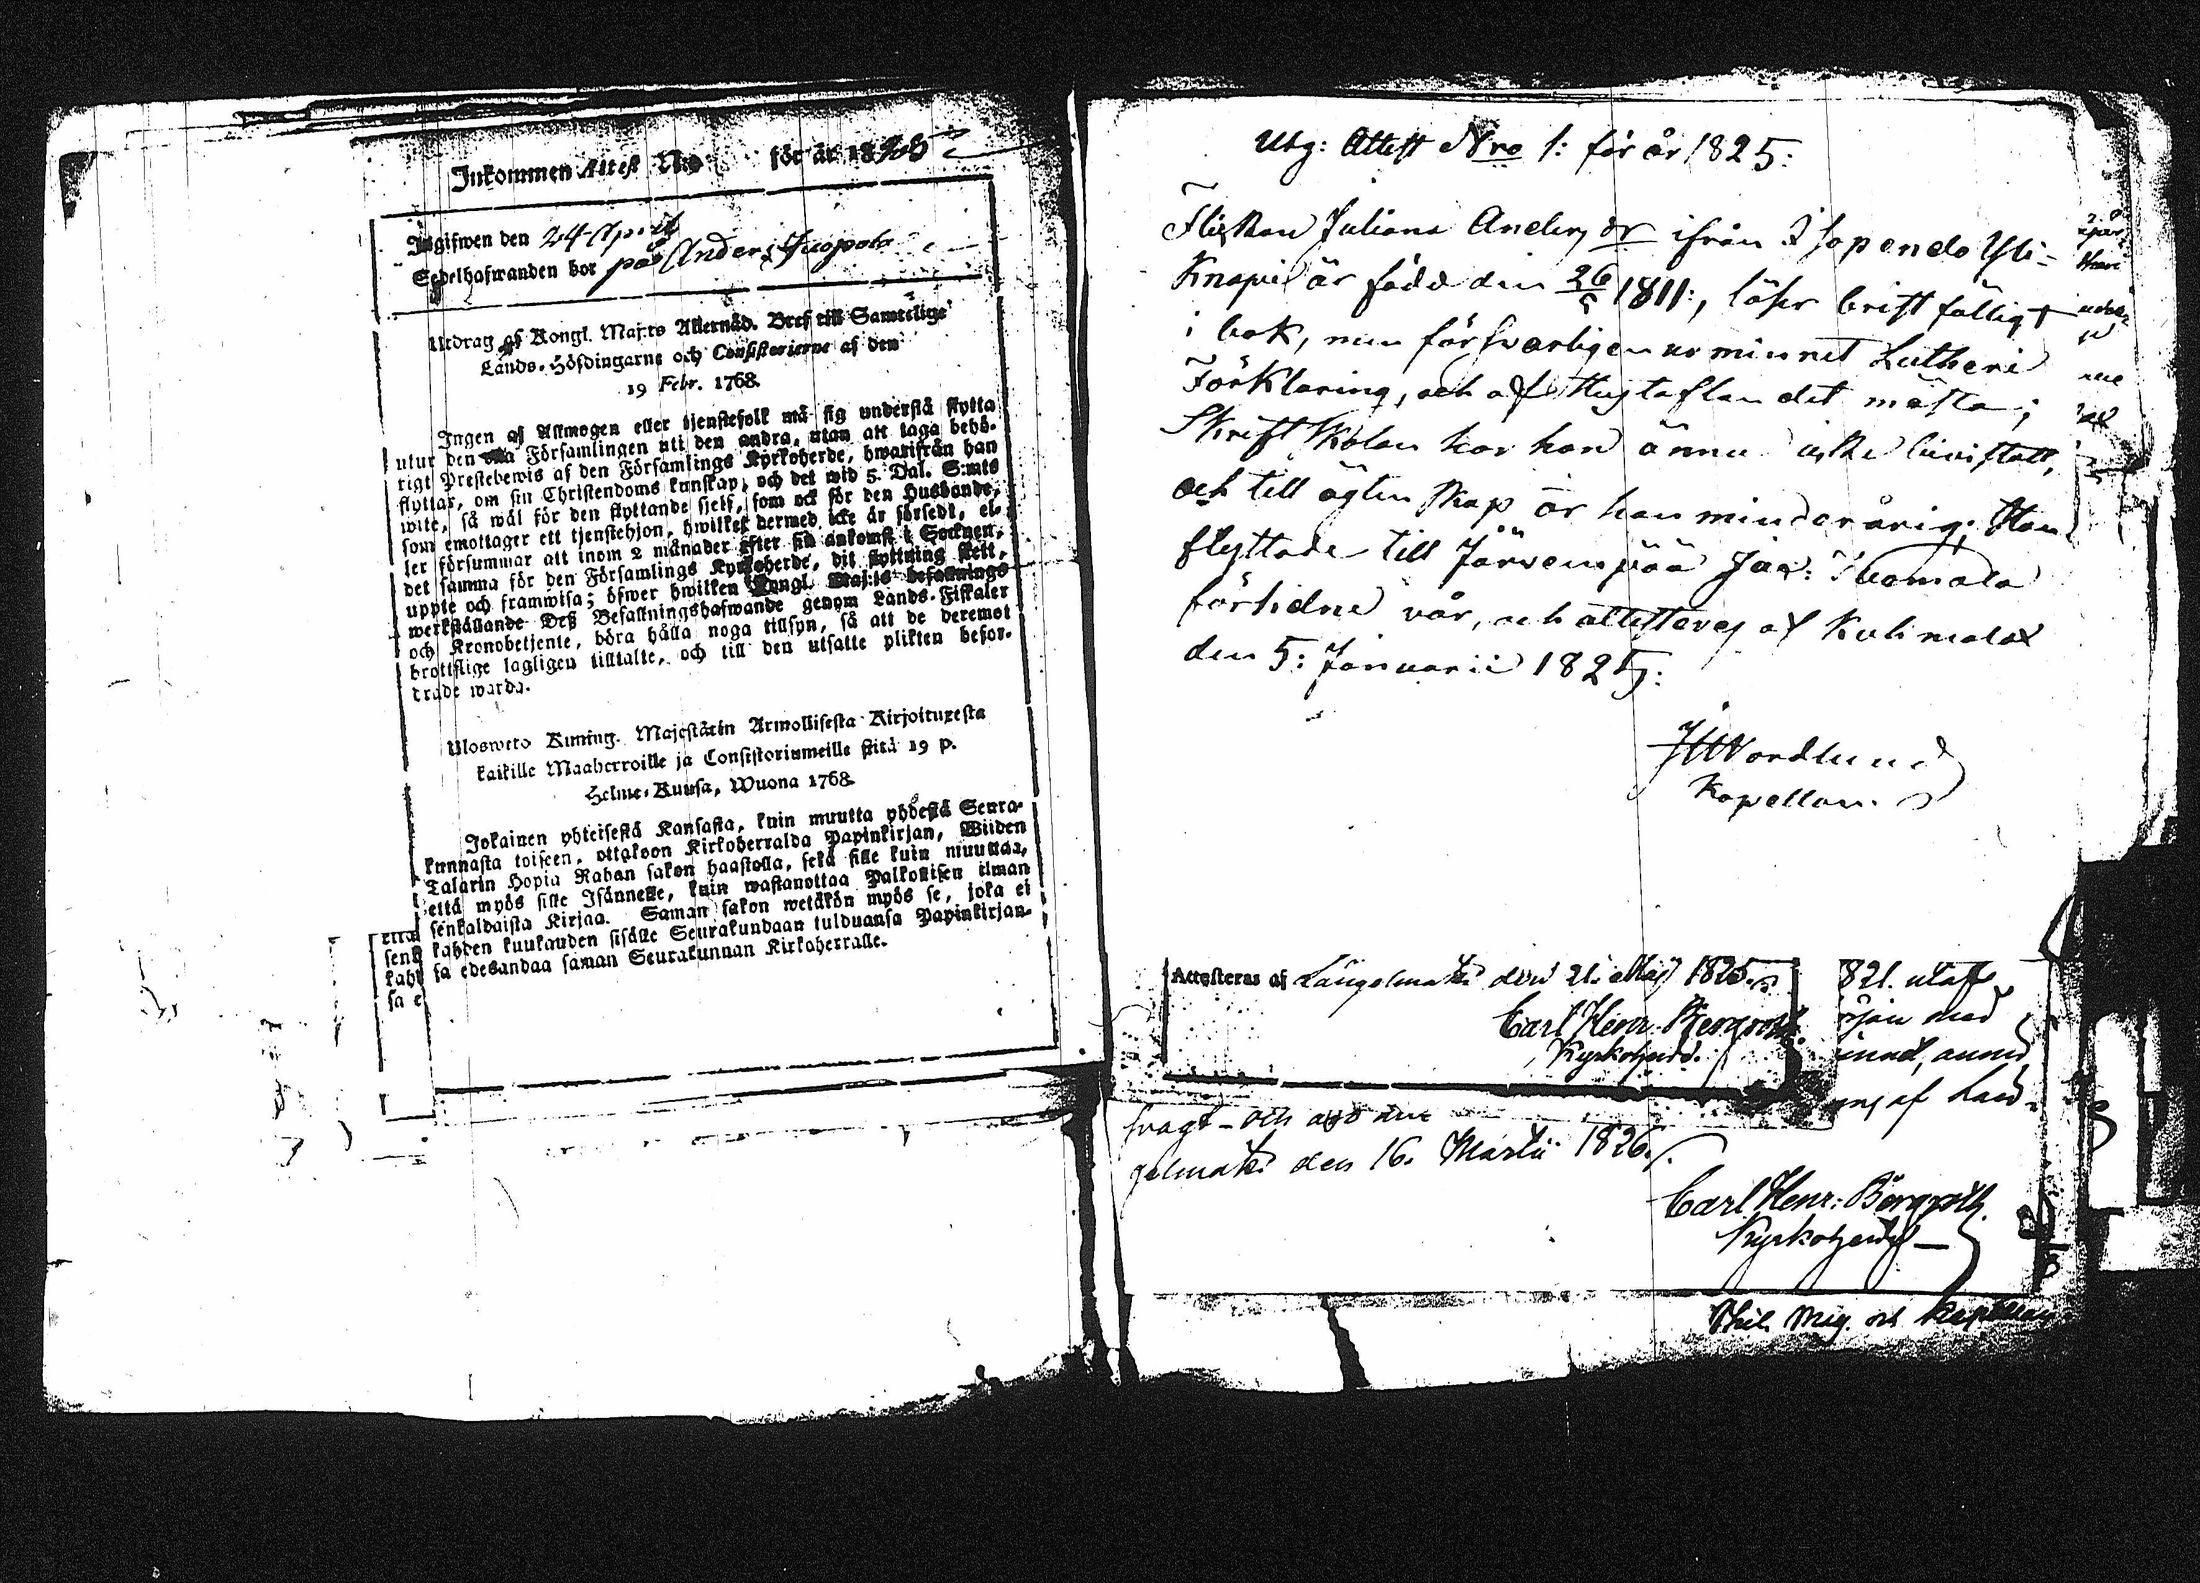 Inkommen Attest N:o för år 1825
Ingifwen den 24 April
Sedelhafwanden bor på Anders Juopola
Utdrag af Kongl. Maj:ts Allernåd. Bref till Samtelige
Lands-Höfdingarne och Consistorierne af den
19 Febr. 1768.
Ingen af Allmogen eller tjenstefolk må sig understå flytta
utur den ena Församlingen uti den andra, utan att taga behö-
rigt Prestebewis af den Församlings Kyrkoherde, hwarifrån han
flyttar, om sin Christendoms kunskap, och det wid 5. Dal. S:mts
wite, så wäl för den flyttande sjelf, som ock för den Husbonde,
som emottager ett tjenstehjon, hwilket dermed icke är försedt, el-
ler försummar att inom 2 månader efter sin ankomst i Socknen,
det samma för den Församlings Kyrkoherde, dit flyttning skett,
uppte och framwisa; öfwer hwilken Kongl. Maj:ts befallnings
werkställande Deß Befallningshafwande genom Lands-Fiskaler
och Kronobetjente, böra hålla noga tillsyn, så att de deremot
brottslige lagligen tilltalte, och till den utsatte plikten befor-
drade warda.
Ulosweto Kuning. Majestätin Armollisesta Kirjoituxesta
kaikille Maaherroille ja Consistoriumeille siitä 19 p.
Helme-Kuusa, Wuona 1768.
Jokainen yhteisestä Kansasta, kuin muutta yhdestä Seura-
kunnasta toiseen, ottakoon Kirkoherralda Papinkirjan, Wiiden
Talarin Hopia Rahan sakon haastolla, sekä sille kuin muuttaa,
että myös sille Isännelle, kuin wastanottaa Palkollisen ilman
senkaldaista Kirjaa. Saman sakon wetäkön myös se, joka ei
kahden kuukauden sisälle Seurakundaan tulduansa Papinkirjan-
sa edesandaa saman Seurakunnan Kirkoherralle.
että
senk
kahd
sa e
Utg: Attest Nro 1: för år 1825:
Flickan Juliana Anders dr ifrån Isopendo Yli-
Knapi är född den 26/5 1811:, läser bristfälligt
i bok, men försvarligen ur minnet Lutheri
Förklaring, och af Hustaflan det mästa;
Skrift Skolan har hon ännu icke bivistatt,
och till ägtenskap är hon minderårig; Hon
flyttade till Järvenpää Jaa: Tuomala
förledne vår, och attesteras af Kuhmalax
den 5: Januarii 1825:
Nordlund
Kapellan.
Attesteras af Längelmäki den 21. Maji 1825.
Carl Henr. Bergroth
Kyrkoherde.
821. utaf
med
innat, annu
af Land-
svagt - och
gelmäki den 16. Martii 1826.
Carl Henr: Bergroth
Kyrkoherde
Phil. Mag. och Kapellan